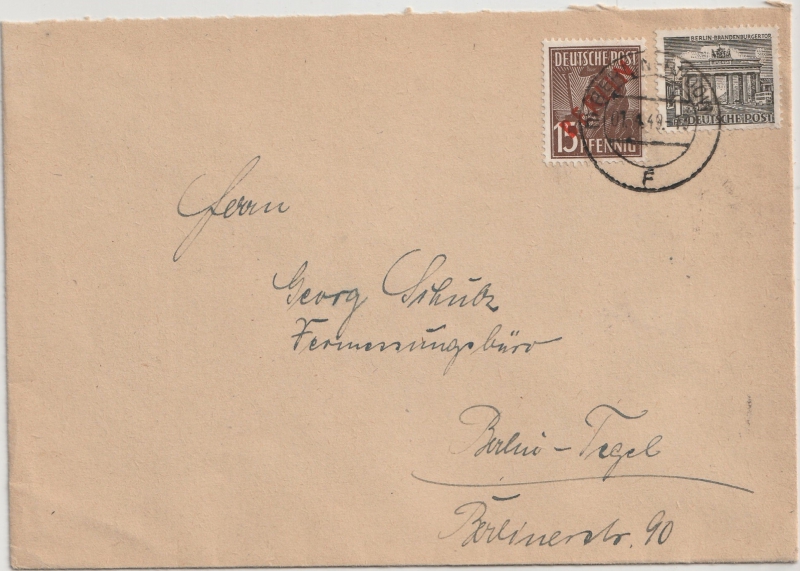 DEUTSCHE POST
BERLIN
15 PFENNIG
BERLIN-BRANDENBURGER TOR
1
DEUTSCHE POST
F
Herrn
Georg Schulz
Vermessungsbüro
Berlin-Tegel
Berlinerstr. 90